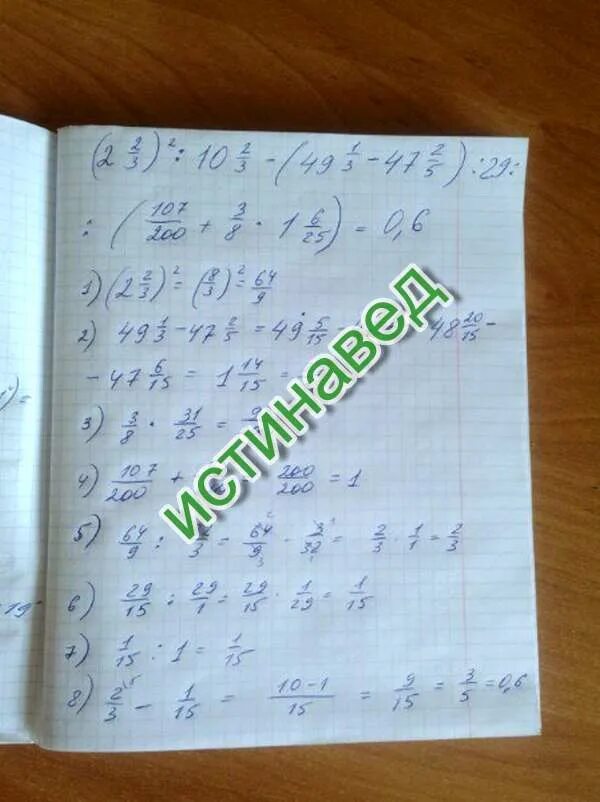 (2 2/3)² : 10 2/3 - (49 1/3 - 47 2/5) : 29 :
: (107/200 + 3/8 · 1 6/25) = 0,6
1) (2 2/3)² = (8/3)² = 64/9
2) 49 1/3 - 47 2/5 = 49 5/15 - 48 20/15 -
- 47 6/15 = 1 14/15 =
3) 3/8 · 31/25 =
4) 107/200 + 200/200 = 1
5) 64/9 : /3 = 64/9 · 3/32 = 2/3 · 1/1 = 2/3
6) 29/15 : 29/1 = 29/15 · 1/29 = 1/15
7) 1/15 : 1 = 1/15
8) 2/3 - 1/15 = 10-1/15 = 9/15 = 3/5 = 0,6
истинавед